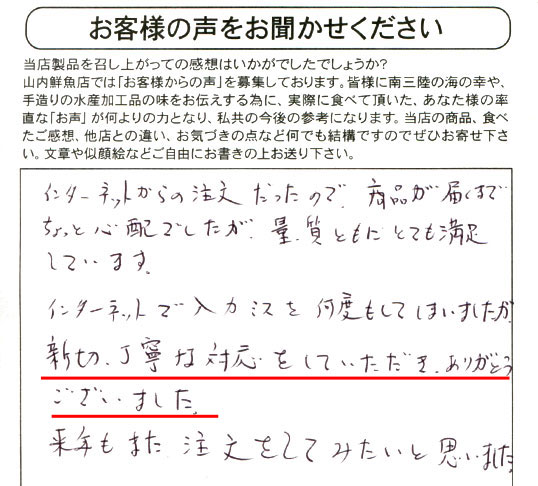 お客様の声をお聞かせください
当店製品を召し上がっての感想はいかがでしたでしょうか?
山内鮮魚店では「お客様からの声」を募集しております。皆様に南三陸の海の幸や、
手造りの水産加工品の味をお伝えする為に、実際に食べて頂いた、あなた様の率
直な「お声」が何よりの力となり、私共の今後の参考になります。当店の商品、食べ
たご感想、他店との違い、お気づきの点など何でも結構ですのでぜひお寄せ下さ
い。文章や似顔絵などご自由にお書きの上お送り下さい。
インターネットからの注文だったので、商品が届くまで
ちょっと心配でしたが、量、質ともにとても満足
しています。
インターネットで入力ミスを何度もしてしまいましたが、
新切、丁寧な対応をしていただき、ありがとう
ございました。
来年もまた注文をしてみたいと思いました